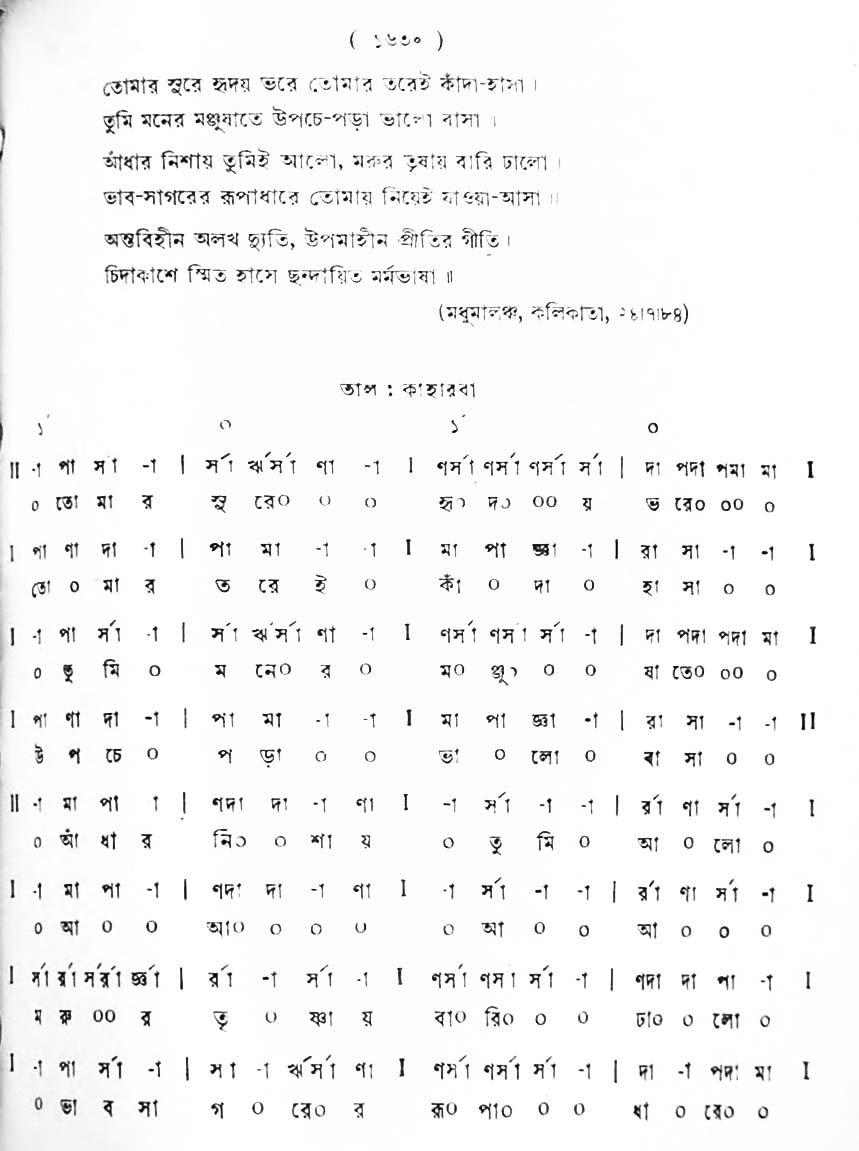 ( ১৬৩০ )
তোমার সুরে হৃদয় ভরে তোমার তরেই কাঁদা-হাসা ।
তুমি মনের মঞ্জুষাতে উপচে-পড়া ভালো বাসা ।
আঁধার নিশায় তুমিই আলো, মরুর তৃষায় বারি ঢালো ।
ভাব-সাগরের রূপাধারে তোমায় নিয়েই যাওয়া-আসা ॥
অন্তবিহীন অলখ দ্যুতি, উপমাহীন প্রীতির গীতি ।
চিদাকাশে স্মিত হাসে ছন্দায়িত মর্মভাষা ॥
(মধুমালঞ্চ, কলিকাতা, ২৪।৭।৮৪)
তাল : কাহারবা
১´ ০ ১´ ০
II -া পা র্সা -া | র্সা ঋর্সা ণা -া I ণর্সা ণর্সা ণর্সা র্সা | দা পদা পমা মা I
০ তো মা র সু রে০ ০ ০ হৃ০ দ০ ০০ য় ভ রে০ ০০ ০
I পা ণা দা -া | পা মা -া -া I মা পা জ্ঞা -া | রা সা -া -া I
তো ০ মা র ত রে ই ০ কাঁ ০ দা ০ হা সা ০ ০
I -া পা র্সা -া | র্সা ঋর্সা ণা -া I ণর্সা ণর্সা র্সা -া | দা পদা পদা মা I
০ তু মি ০ ম নে০ র ০ ম০ ঞ্জু০ ০ ০ ষা তে০ ০০ ০
I পা ণা দা -া | পা মা -া -া I মা পা জ্ঞা -া | রা সা -া -া II
উ প চে ০ প ড়া ০ ০ ভা ০ লো ০ বা সা ০ ০
II -া মা পা -া | ণদা দা -া ণা I -া র্সা -া -া | র্রা ণা র্সা -া I
০ আঁ ধা র নি০ ০ শা য় ০ তু মি ০ আ ০ লো ০
I -া মা পা -া | ণদা দা -া ণা I -া র্সা -া -া | র্রা ণা র্সা -া I
০ আ ০ ০ আ০ ০ ০ ০ ০ আ ০ ০ আ ০ ০ ০
I র্সা র্রা র্সর্রা র্জ্ঞা | র্রা -া র্সা -া I ণর্সা ণর্সা র্সা -া | ণদা দা পা -া I
ম রু ০০ র তৃ ০ ষ্ণা য় বা০ রি০ ০ ০ ঢা০ ০ লো ০
I -া পা র্সা -া | র্সা -া ঋর্সা ণা I ণর্সা ণর্সা র্সা -া | দা -া পদা মা I
০ ভা ব সা গ ০ রে০ র রূ০ পা০ ০ ০ ধা ০ রে০ ০